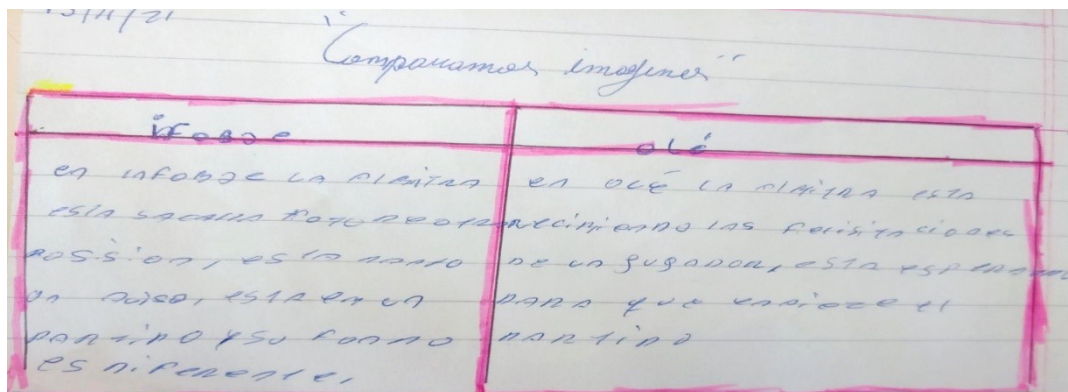 15/11/21
"Comparamos imagenes"
infobae
olé
en infobae la arbitra
esta sacada foto de otra
posision, esta dando
un aviso, esta en un
partido y su fondo
es diferente.
en olé la arbitra esta
recibiendo las felisitaciones
de un gugador, esta esperando
para que empiece el
partido